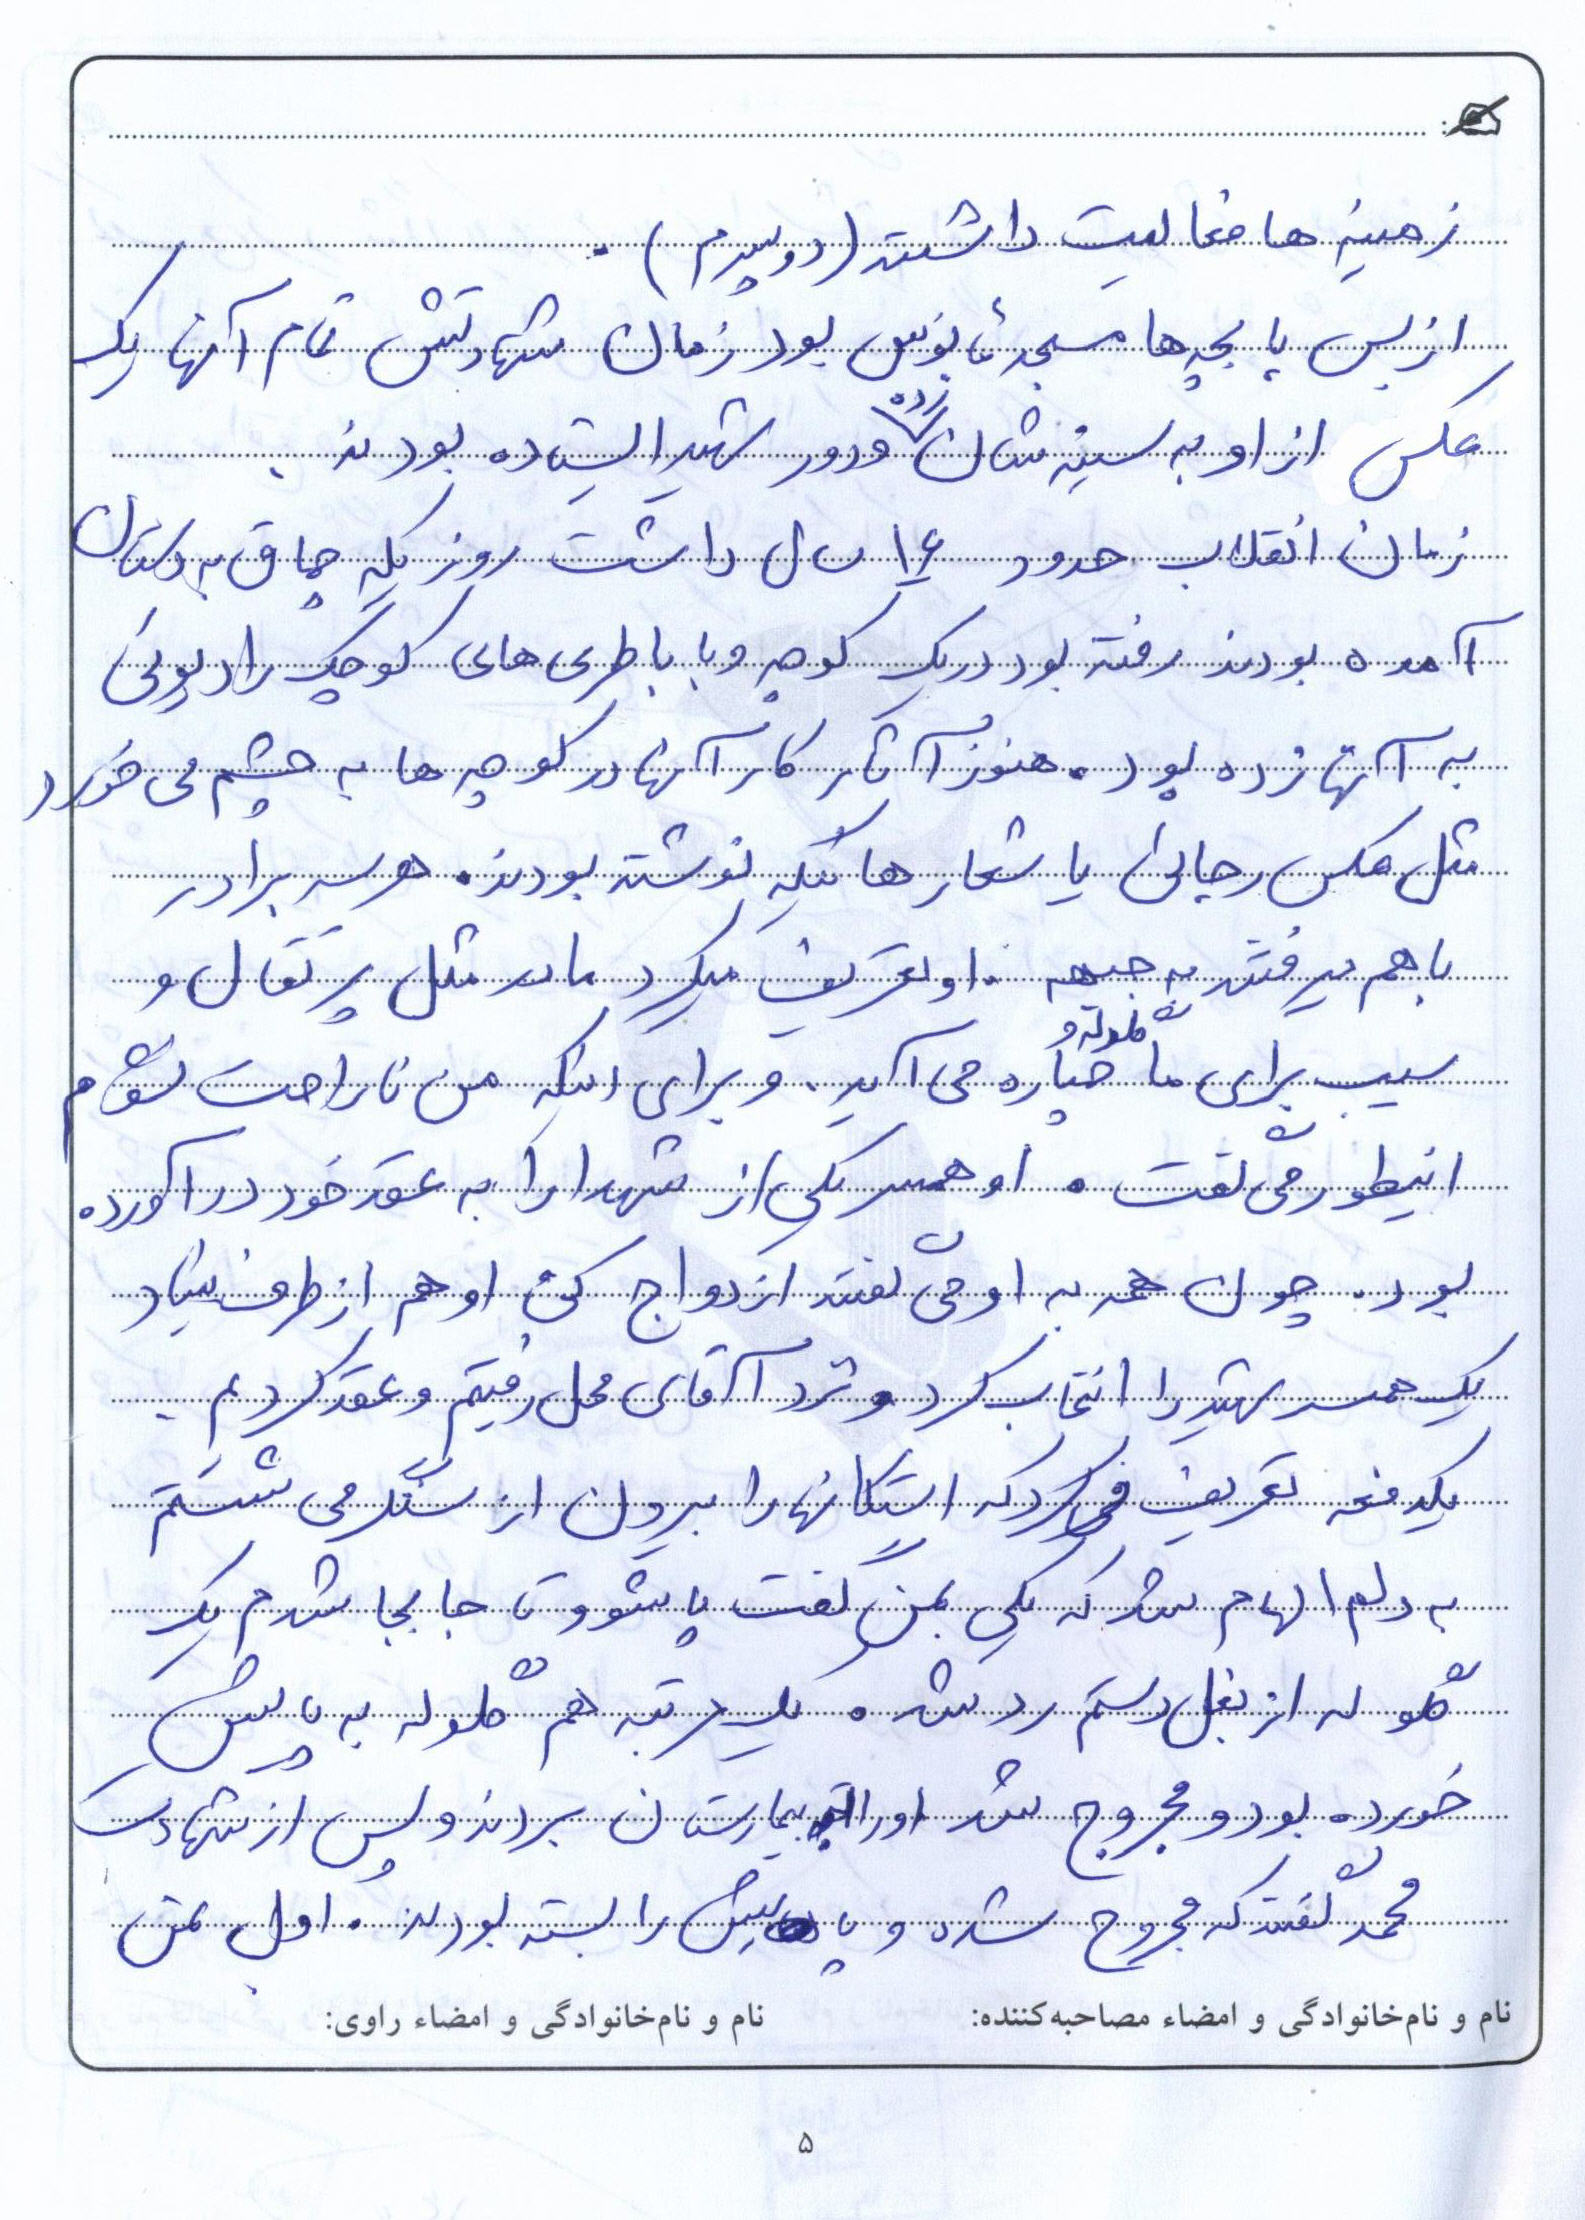 زمینه ها فعالیت داشتند (دو پسرم) .
از بس با بچه ها مسجد مأنوس بود زمان شهادتش تمام آنها یک
عکس از او به سینه شان زده ودور شهید ایستاده بودند .
زمان انقلاب حدود ۱۶ سال داشت روزیکه چماق به دستان
آمده بودند رفته بود در یک کوچه و با باطری های کوچک رادیوئی
به آنها زده بود . هنوز آثار کار آنها در کوچه ها به چشم می خورد
مثل عکس رجائی یا شعارهائیکه نوشته بودند . هر سه برادر
با هم میرفتند به جبهه . او تعریف میکرد مادر مثل پرتقال و
سیب برای ما گلوله و خمپاره می آید . و برای اینکه من ناراحت نشوم
اینطور می گفت . او همسر یکی از شهدا را به عقد خود در آورده
بود . چون همه به او می گفتند ازدواج کن او هم از طرف بنیاد
یک همسر شهید را انتخاب کرد و نزد آقای محل رفتیم و عقد کردیم .
یکدفعه تعریف می کرد که استکانها را بیرون از سنگر می شستم
به دلم الهام شد که یکی بمن گفت پاشو و تا جابجا شدم یک
گلوله از بغل دستم رد شد . یک مرتبه هم گلوله به پایش
خورده بود و مجروح شد او را به بیمارستان بردند و پس از شهادت
محمد گفتند که مجروح شده و پایش را بسته بودند . اول بمن
نام و نام‌خانوادگی و امضاء مصاحبه‌کننده: نام و نام‌خانوادگی و امضاء راوی:
۵